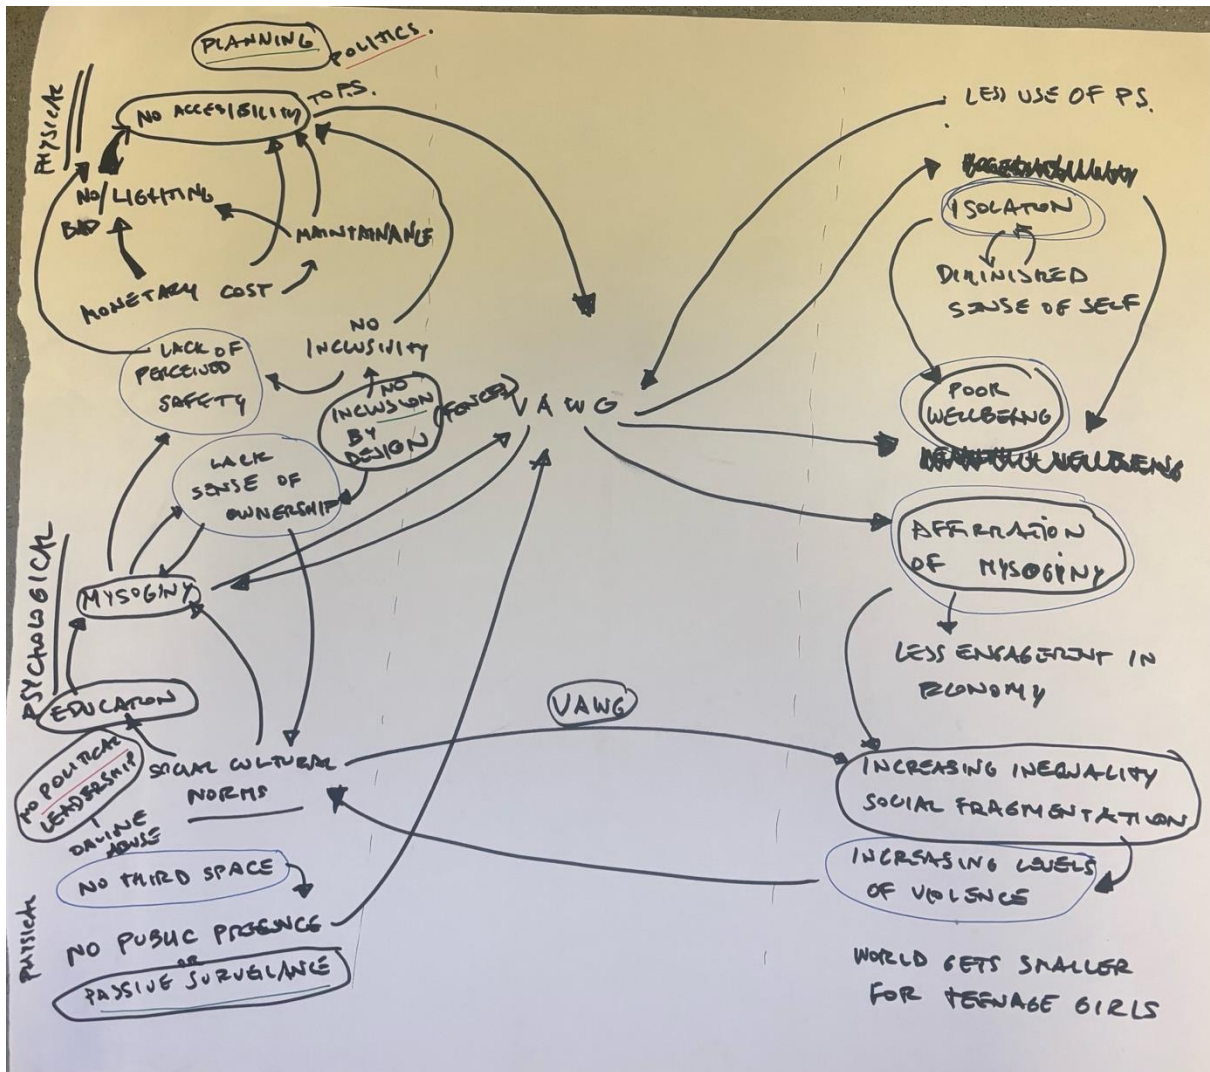 PLANNING
POLITICS.
PHYSICAL
NO ACCESIBILITY TO P.S.
NO/LIGHTING
BAD
MAINTAINANCE
MONETARY COST
LACK OF
PERCEIVED
SAFETY
NO
INCLUSIVITY
NO
INCLUSION
BY
DESIGN
(FENCES)
LACK
SENSE OF
OWNERSHIP
PSYCHOLOGICAL
MYSOGINY
EDUCATION
NO POLITICAL
LEADERSHIP
ONLINE
ABUSE
SOCIAL CULTURAL
NORMS
PHYSICAL
NO THIRD SPACE
NO PUBLIC PRESENCE
OR
PASSIVE SURVEILANCE
VAWG
VAWG
LESS USE OF P.S.
ISOLATION
DIMINISHED
SENSE OF SELF
POOR
WELLBEING
WELLBEING
AFFIRMATION
OF MYSOGINY
LESS ENGAGEMENT IN
ECONOMY
INCREASING INEQUALITY
SOCIAL FRAGMENTATION
INCREASING LEVELS
OF VIOLENCE
WORLD GETS SMALLER
FOR TEENAGE GIRLS